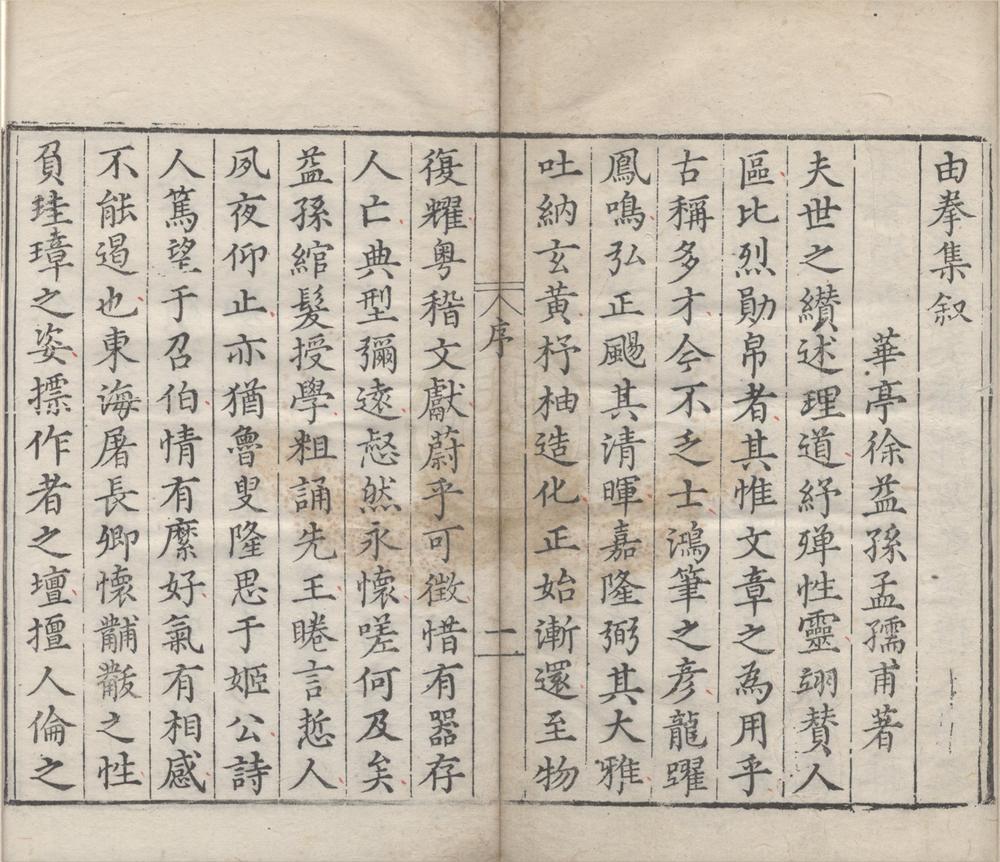 由拳集叙
華亭徐益孫孟孺甫著
夫世之纘述理道紓殫性靈翊賛人
區比烈勛帛者其惟文章之為用乎
古稱多才今不乏士鴻筆之彦龍躍
鳳鳴弘正颺其清暉嘉隆弼其大雅
吐納玄黃杼柚造化正始漸還至物
序
一
復耀粤稽文獻蔚乎可徵惜有器存
人亡典型彌遠惄然永懷嗟何及矣
益孫綰髮授學粗誦先王睠言悊人
夙夜仰止亦猶魯叟隆思于姬公詩
人篤望于召伯情有縻好氣有相感
不能遏也東海屠長卿懷黼黻之性
負珪璋之姿摽作者之壇擅人倫之